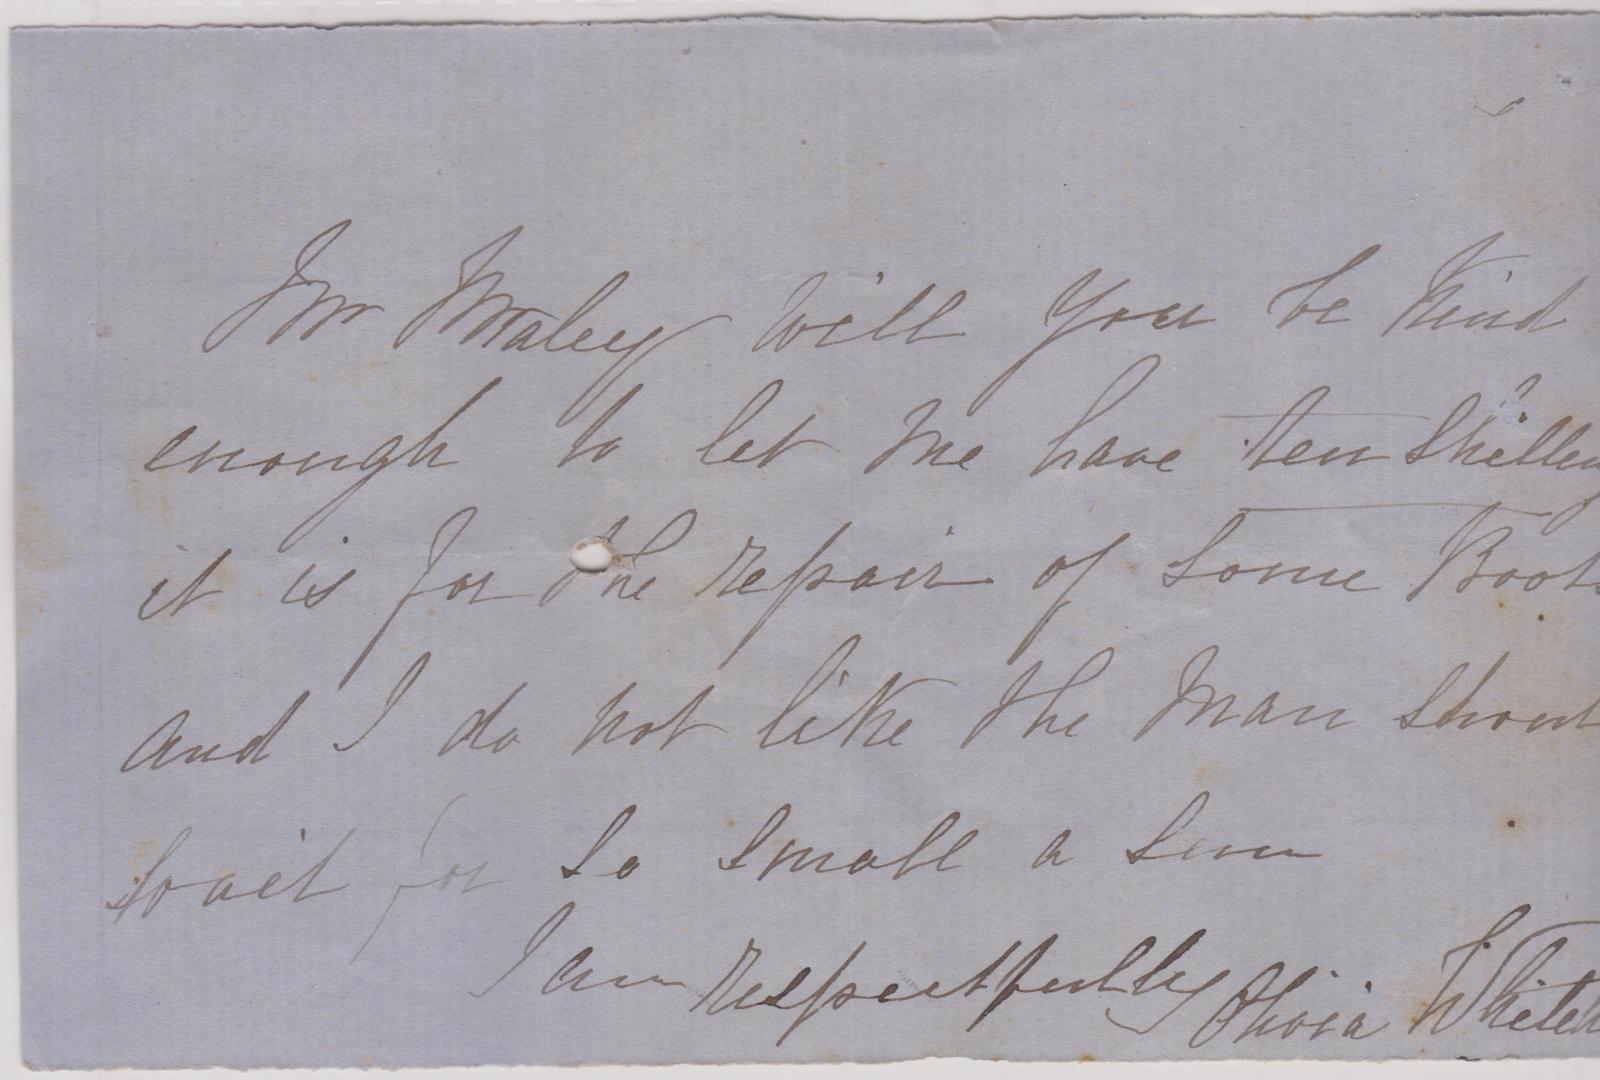 Mr Maley will you be kind
enough to let me have ten shilling
it is for the repair of some Boots
and I do not like the man shoul
wait for so small a sum
I am respectfully Olivia Whiteh